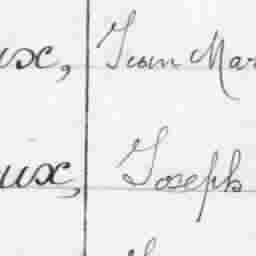 ux, Jean Mar
ux, Joseph